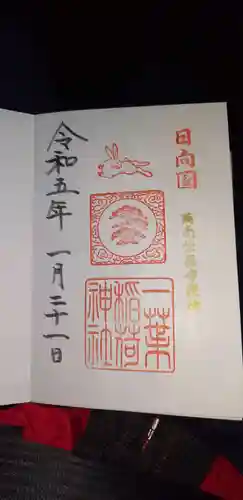 日向国
一葉
稲荷
神社
令和五年 一月二十一日